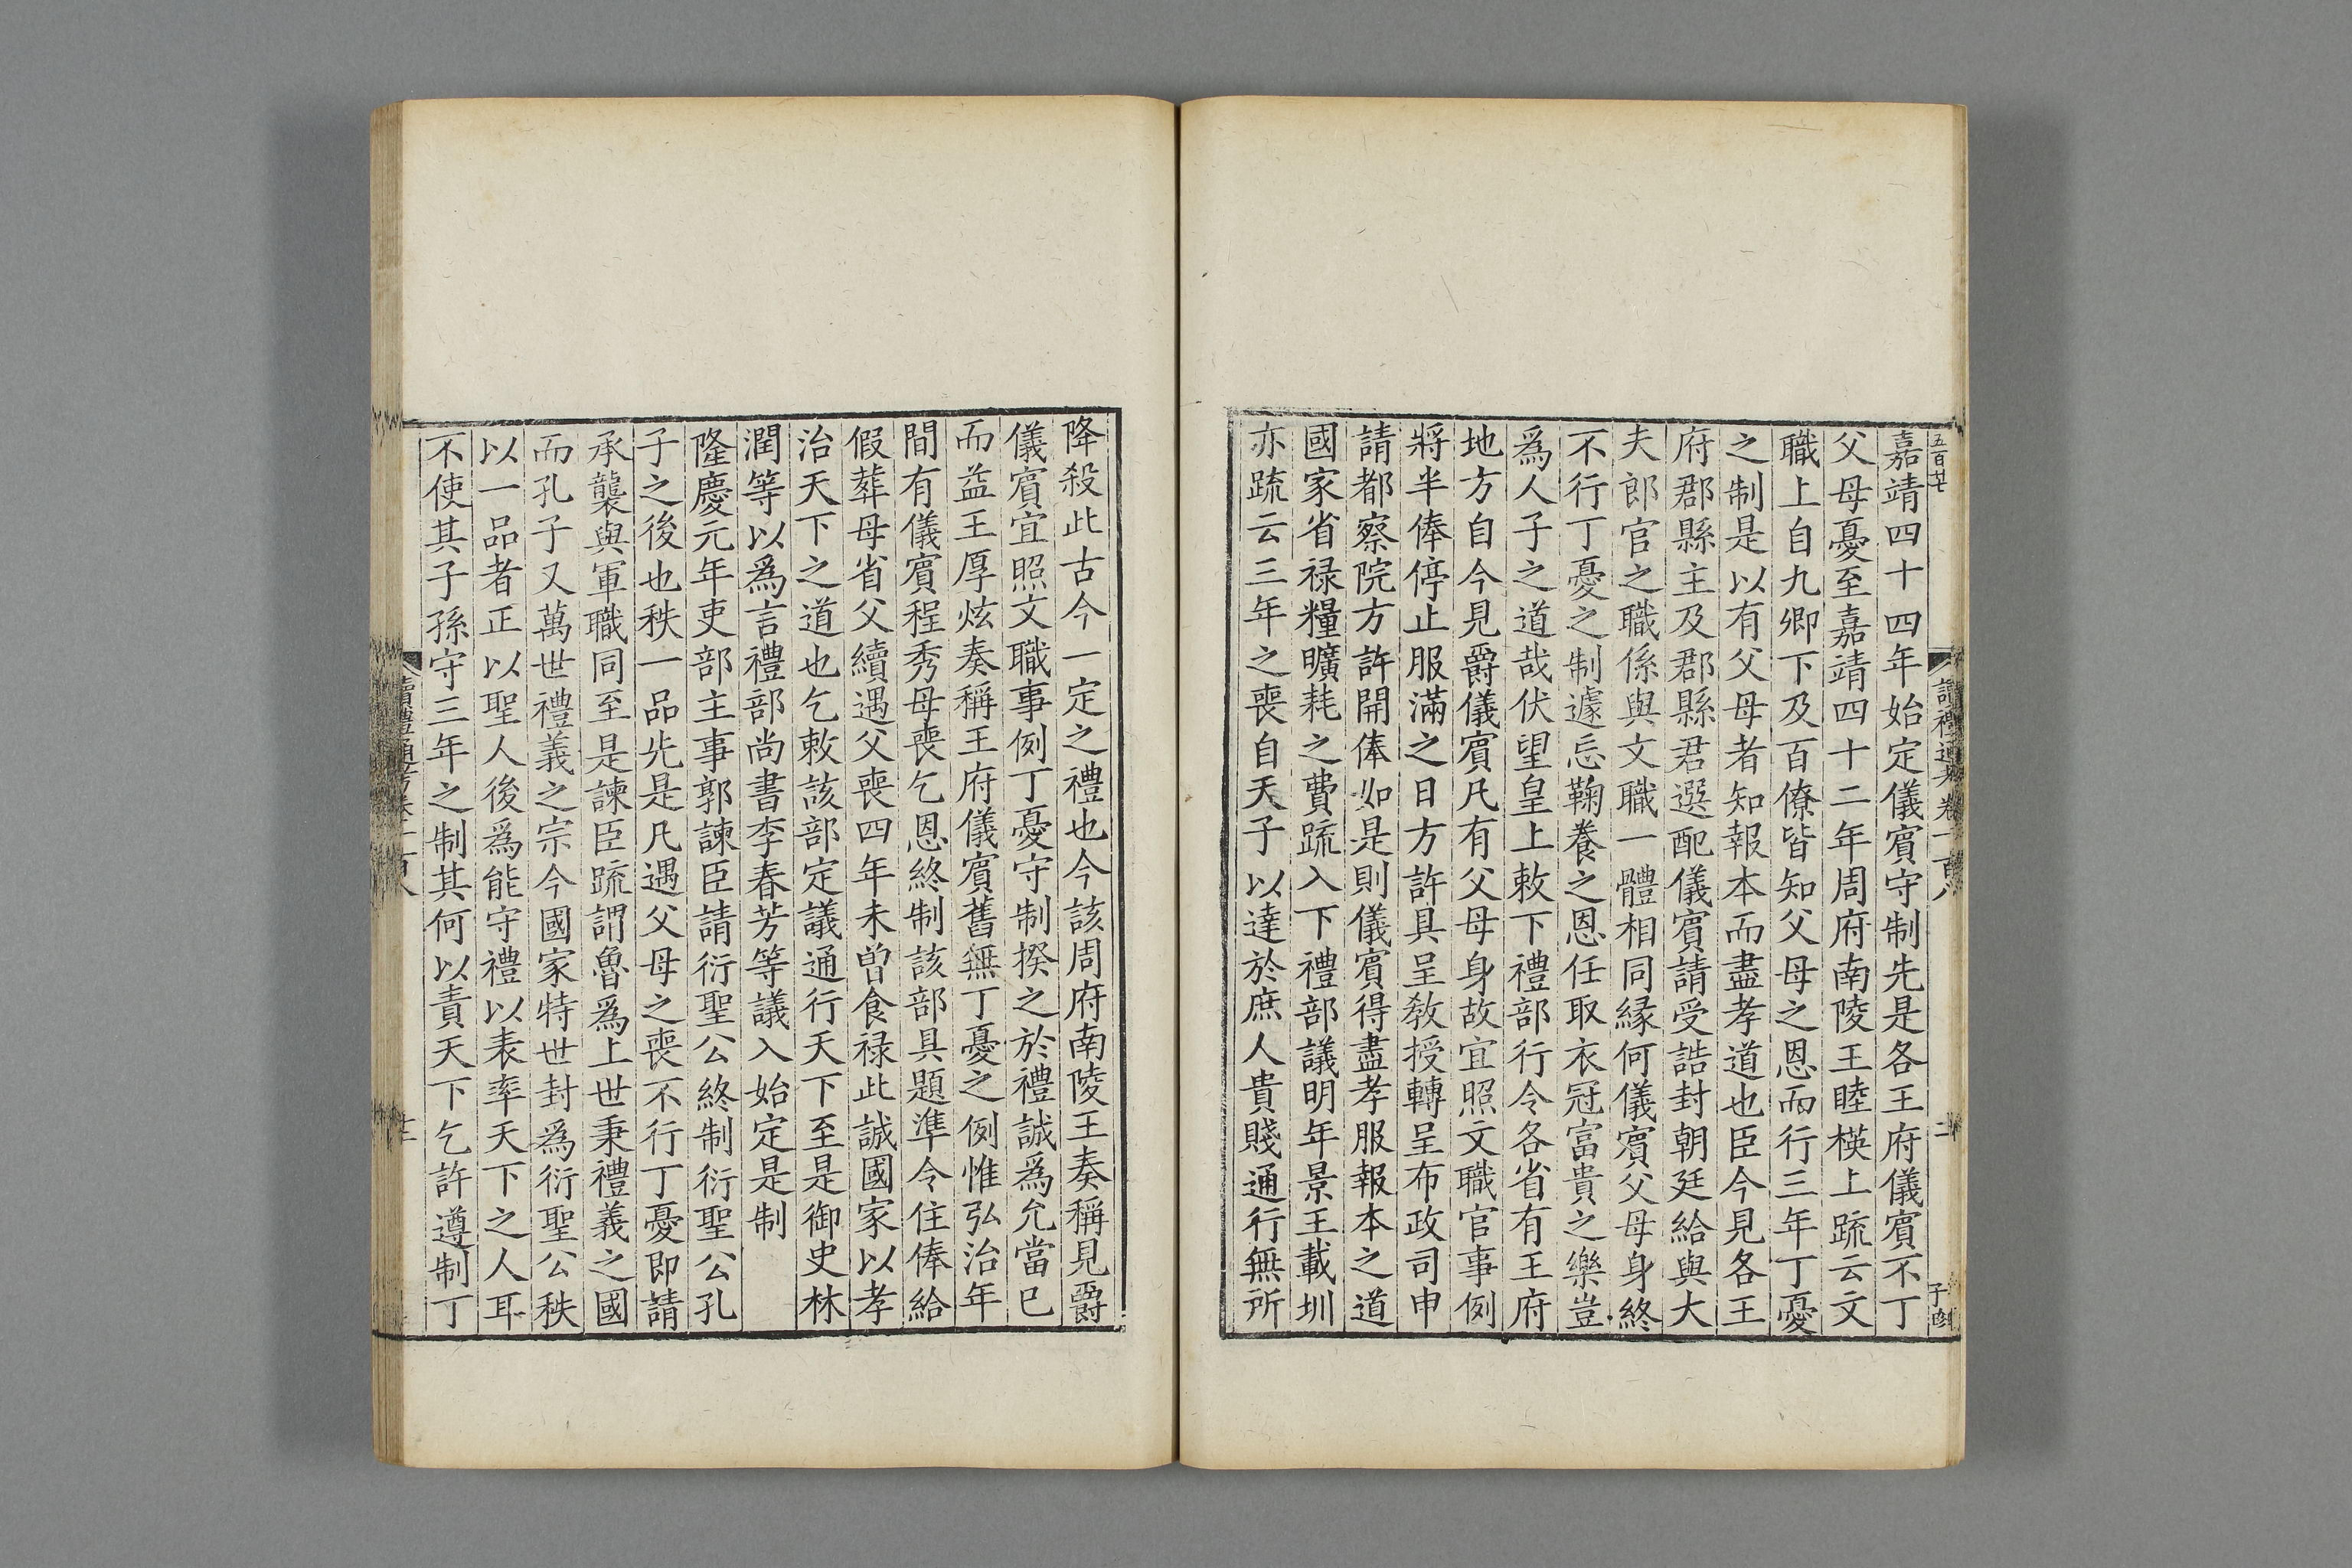 嘉靖四十四年始定儀賓守制先是各王府儀賓不丁
父母憂至嘉靖四十二年周府南陵王睦楧上疏云文
職上自九卿下及百僚皆知父母之恩而行三年丁憂
之制是以有父母者知報本而盡孝道也臣今見各王
府郡縣主及郡縣君選配儀賓請受誥封朝廷給與大
夫郎官之職係與文職一體相同緣何儀賓父母身終
不行丁憂之制遽忘鞠養之恩任取衣冠富貴之樂豈
為人子之道哉伏望皇上敕下禮部行令各省有王府
地方自今見爵儀賓凡有父母身故宜照文職官事例
將半俸停止服滿之日方許具呈教授轉呈布政司申
請都察院方許開俸如是則儀賓得盡孝服報本之道
國家省祿糧曠耗之費疏入下禮部議明年景王載圳
亦疏云三年之喪自天子以達於庶人貴賤通行無所
降殺此古今一定之禮也今該周府南陵王奏稱見爵
儀賓宜照文職事例丁憂守制揆之於禮誠爲允當已
而益王厚炫奏稱王府儀賓舊無丁憂之例惟弘治年
間有儀賓程秀母喪乞恩終制該部具題準令住俸給
假葬母省父續遇父喪四年未曾食祿此誠國家以孝
治天下之道也乞敕該部定議通行天下至是御史林
潤等以爲言禮部尚書李春芳等議入始定是制
隆慶元年吏部主事郭諫臣請衍聖公終制衍聖公孔
子之後也秩一品先是凡遇父母之喪不行丁憂即請
承襲與軍職同至是諫臣疏謂魯爲上世秉禮義之國
而孔子又萬世禮義之宗今國家特世封爲衍聖公秩
以一品者正以聖人後爲能守禮以表率天下之人耳
不使其子孫守三年之制其何以責天下乞許遵制丁